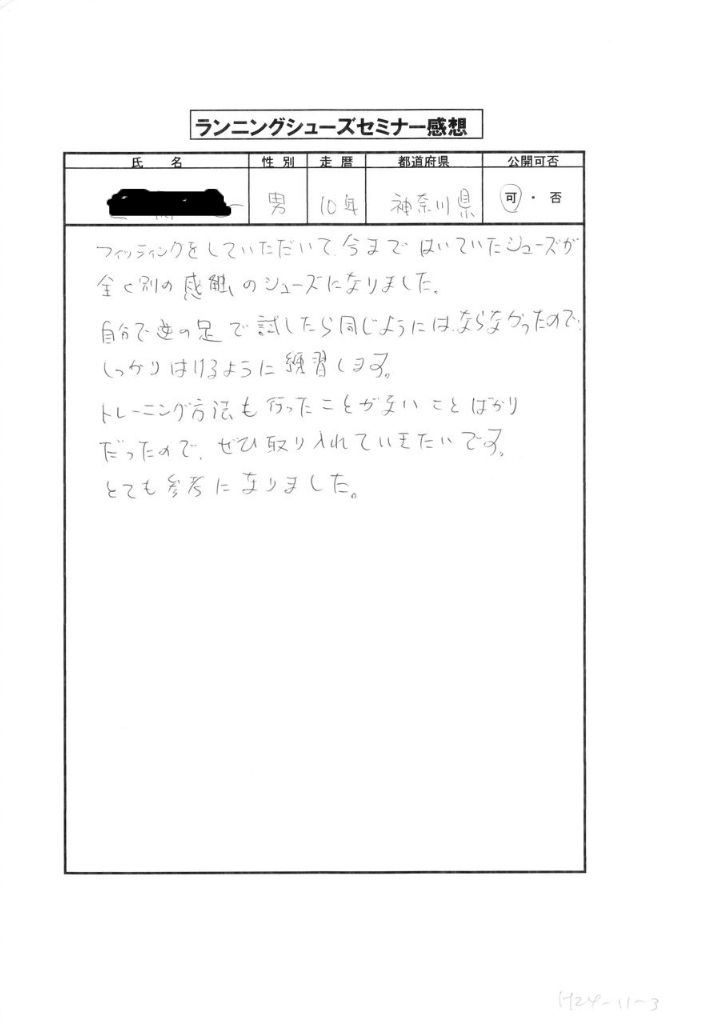 ランニングシューズセミナー感想
氏 名 性 別 走 暦 都道府県 公開可否
男 10年 神奈川県 可・否
フィッティングをしていただいて、今まではいていたシューズが
全く別の感触のシューズになりました。
自分で逆の足で試したら同じようにはならなかったので、
しっかりはけるように練習します。
トレーニング方法も行ったことがないことばかり
だったので、ぜひ取り入れていきたいです。
とても参考になりました。
H24-11-3